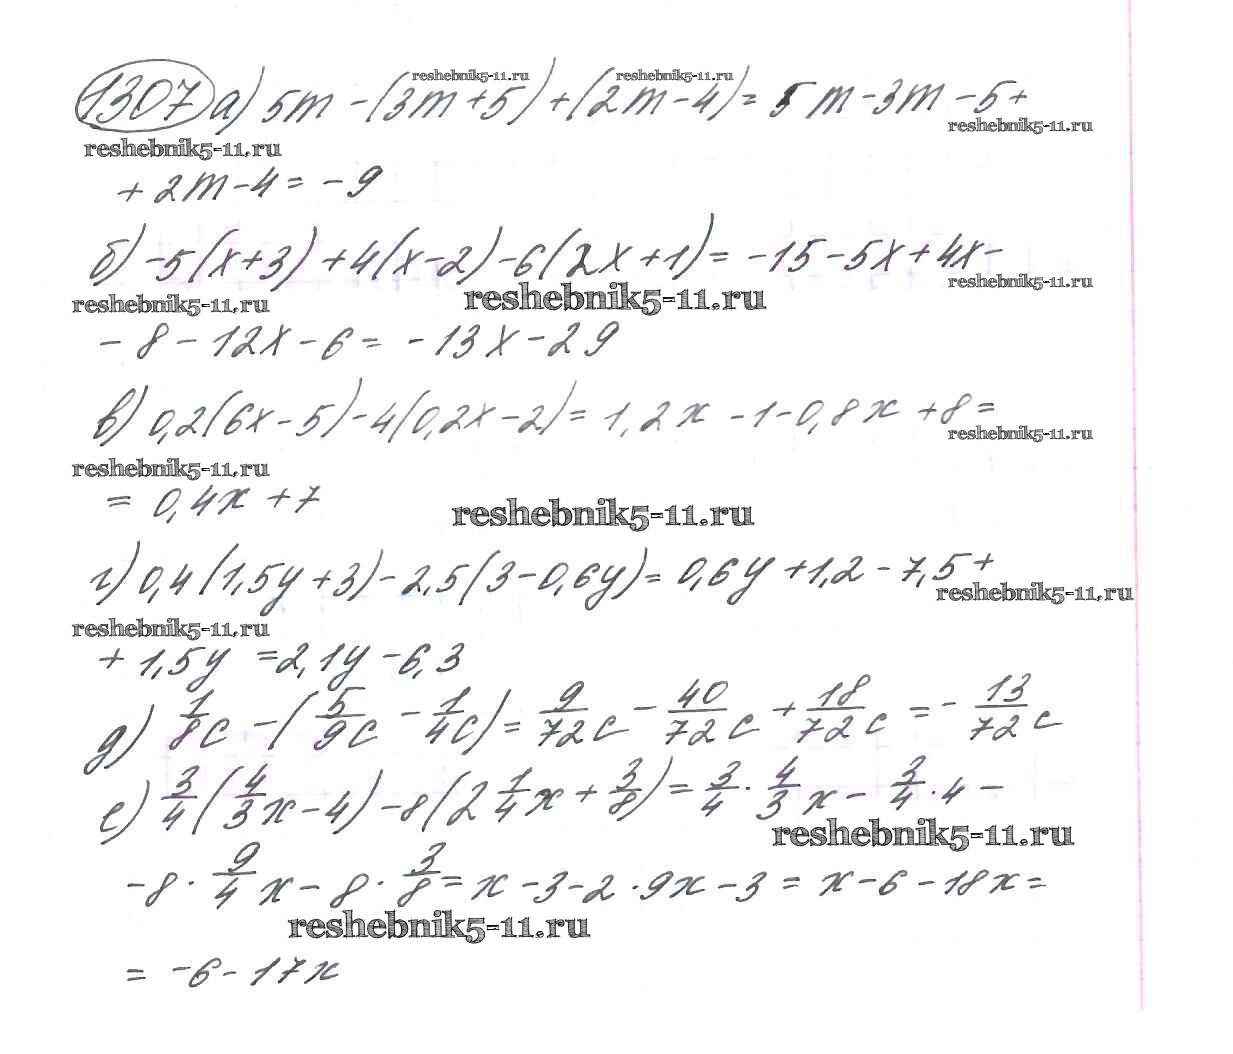 1307 а) 5m - (3m + 5) + (2m - 4) = 5m - 3m - 5 +
reshebnik5-11.ru reshebnik5-11.ru
reshebnik5-11.ru reshebnik5-11.ru
+ 2m - 4 = -9
б) -5(x+3) + 4(x-2) - 6(2x+1) = -15 - 5x + 4x -
reshebnik5-11.ru reshebnik5-11.ru reshebnik5-11.ru
- 8 - 12x - 6 = -13x - 29
в) 0,2(6x - 5) - 4(0,2x - 2) = 1,2x - 1 - 0,8x + 8 =
reshebnik5-11.ru reshebnik5-11.ru
= 0,4x + 7
reshebnik5-11.ru
г) 0,4(1,5y + 3) - 2,5(3 - 0,6y) = 0,6y + 1,2 - 7,5 +
reshebnik5-11.ru reshebnik5-11.ru
+ 1,5y = 2,1y - 6,3
д) 1/8 c - (5/9 c - 1/4 c) = 9/72 c - 40/72 c + 18/72 c = - 13/72 c
е) 3/4 (4/3 x - 4) - 8(2 1/4 x + 3/8) = 3/4 · 4/3 x - 3/4 · 4 -
reshebnik5-11.ru
- 8 · 9/4 x - 8 · 3/8 = x - 3 - 2 · 9x - 3 = x - 6 - 18x =
reshebnik5-11.ru
= -6 - 17x